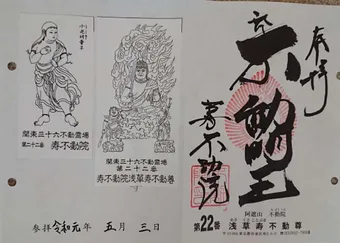 奉拝
不動明王
寿不動院
第22番
阿遮山 不動院
浅草寿不動尊
関東三十六不動霊場
第二十二番
寿不動院浅草寿不動尊
関東三十六不動霊場
第二十二番 寿不動院
参拝 令和元年 五月 三日